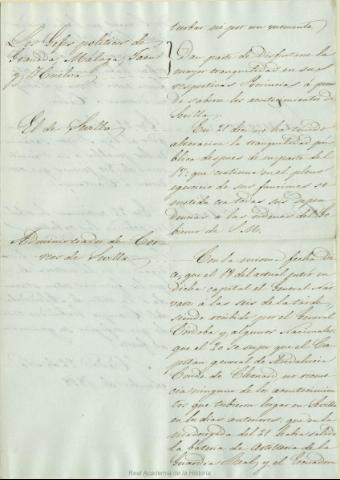 turbar ni por un momento.
Los Gefes politicos de
Granada, Malaga, Jaen
y Huelva
Dan parte de disfrutarse la
mayor tranquilidad en sus
respectivas Provincias á pesar
de saberse los acontecimientos de
Sevilla.
El de Sevilla
En 21 dice no ha tenido
alteracion la tranquilidad pu
blica despues de su parte del
19: que continua en el pleno
egercicio de sus funciones so
metido con todas sus depen
dencias á las ordenes del Go
bierno de S. M.
Administrador de Cor
reos de Sevilla
Con la misma fecha di
ce, que el 18 del actual entró en
dicha capital el General Nar
vaez á las seis de la tarde
siendo recibido por el General
Cordoba y algunos Nacionales
que el 20 se supo que el Ca
pitan general de Andalucia
Conde de Cleonard no recono
cia ninguno de los acontecimien
tos que tubieron lugar en Sevilla
en los dias anteriores, que en la
madrugada del 21 habia salido
la bateria de Artilleria de la
Guardia Real, y el Escuadron
Real Academia de la Historia